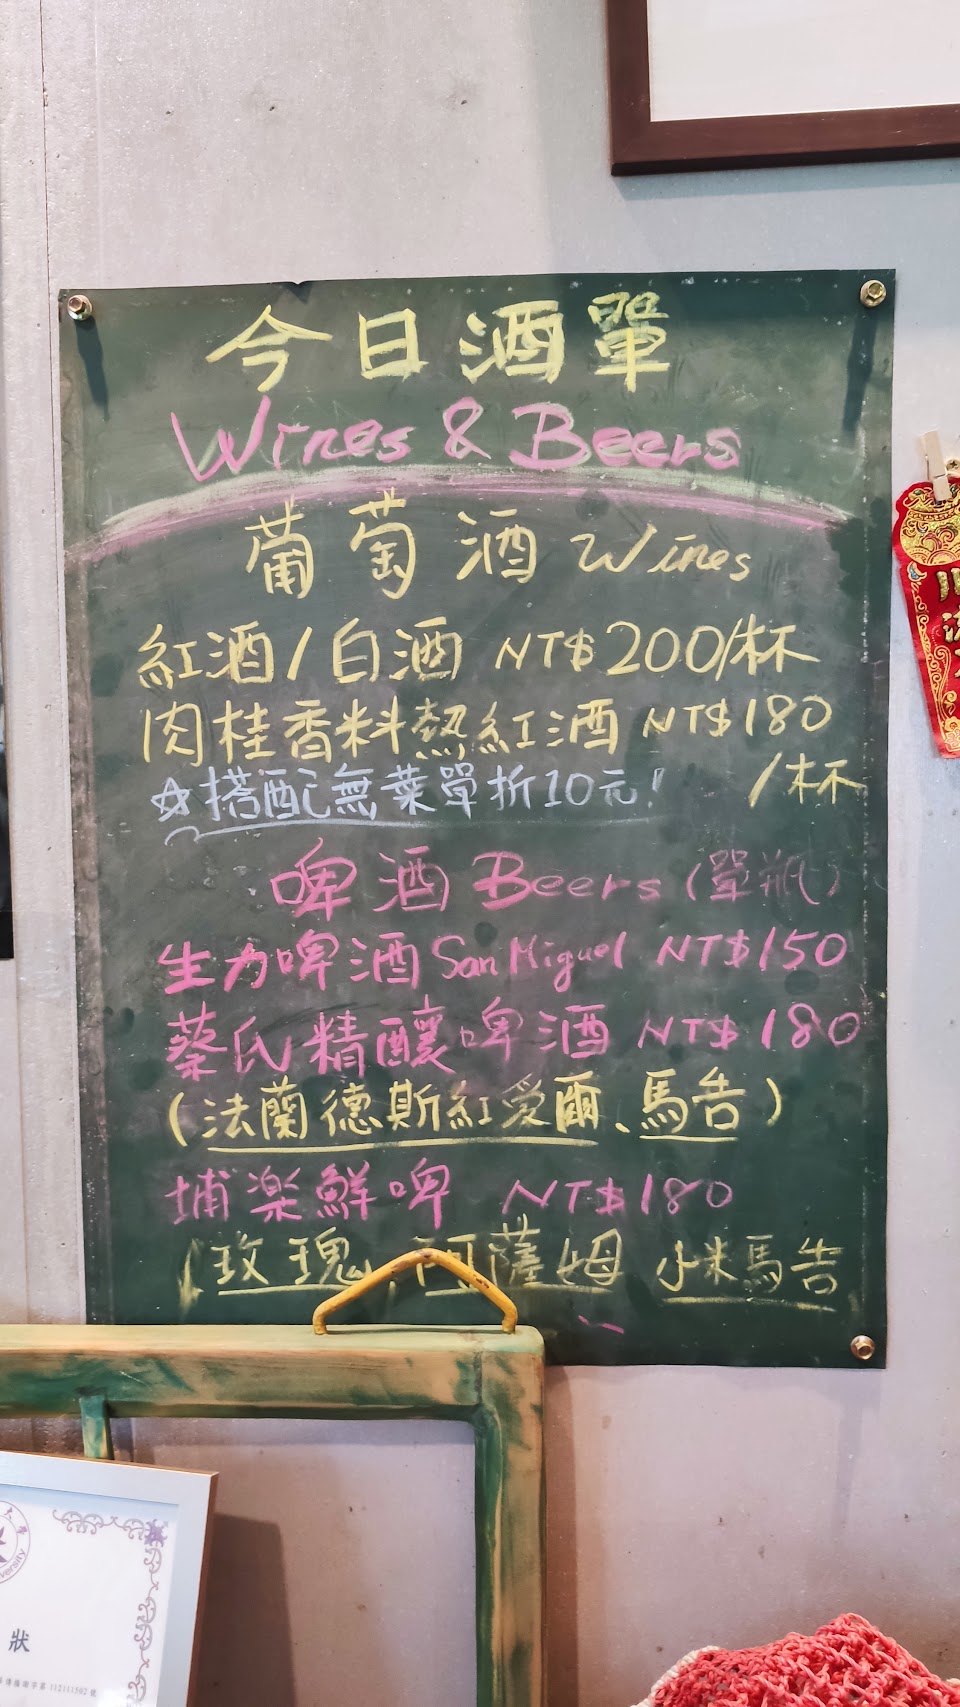 今日酒單
Wines & Beers
葡萄酒 Wines
紅酒/白酒 NT$200/杯
肉桂香料熱紅酒 NT$180
/杯
☆搭配無菜單折10元!
啤酒 Beers (單瓶)
生力啤酒 San Miguel NT$150
蔡氏精釀啤酒 NT$180
(法蘭德斯紅愛爾、馬告)
埔楽鮮啤 NT$180
(玫瑰,阿薩姆 小米馬告
狀
112111502號